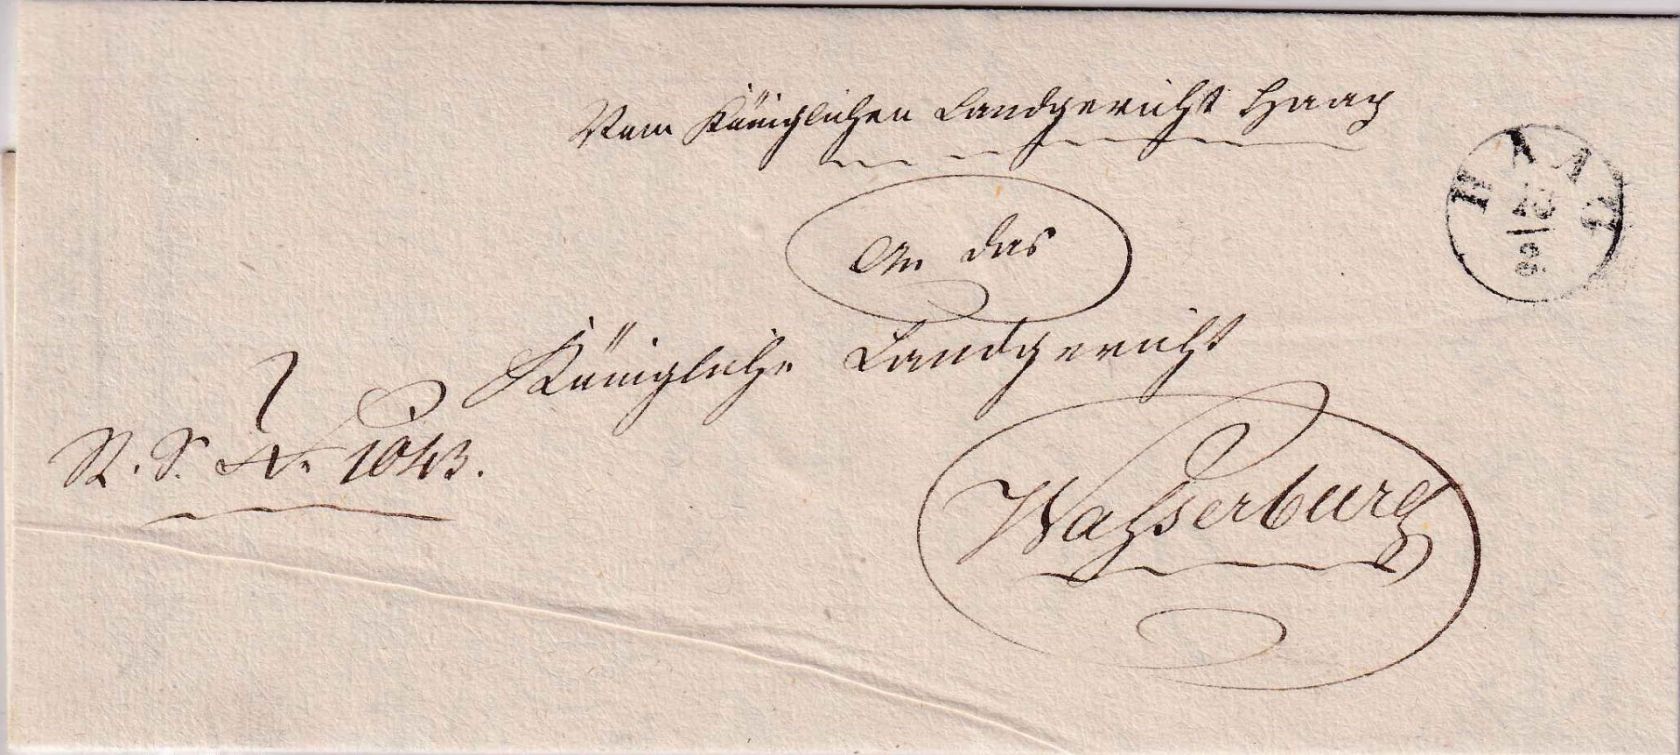 Vom Königlichen Landgericht Haag
HAAG
An das
Königliche Landgericht
R. S. No 1043.
Wasserburg